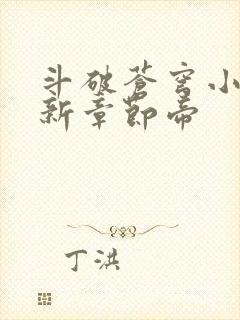 斗破苍穹小
新章节帝
丁洪